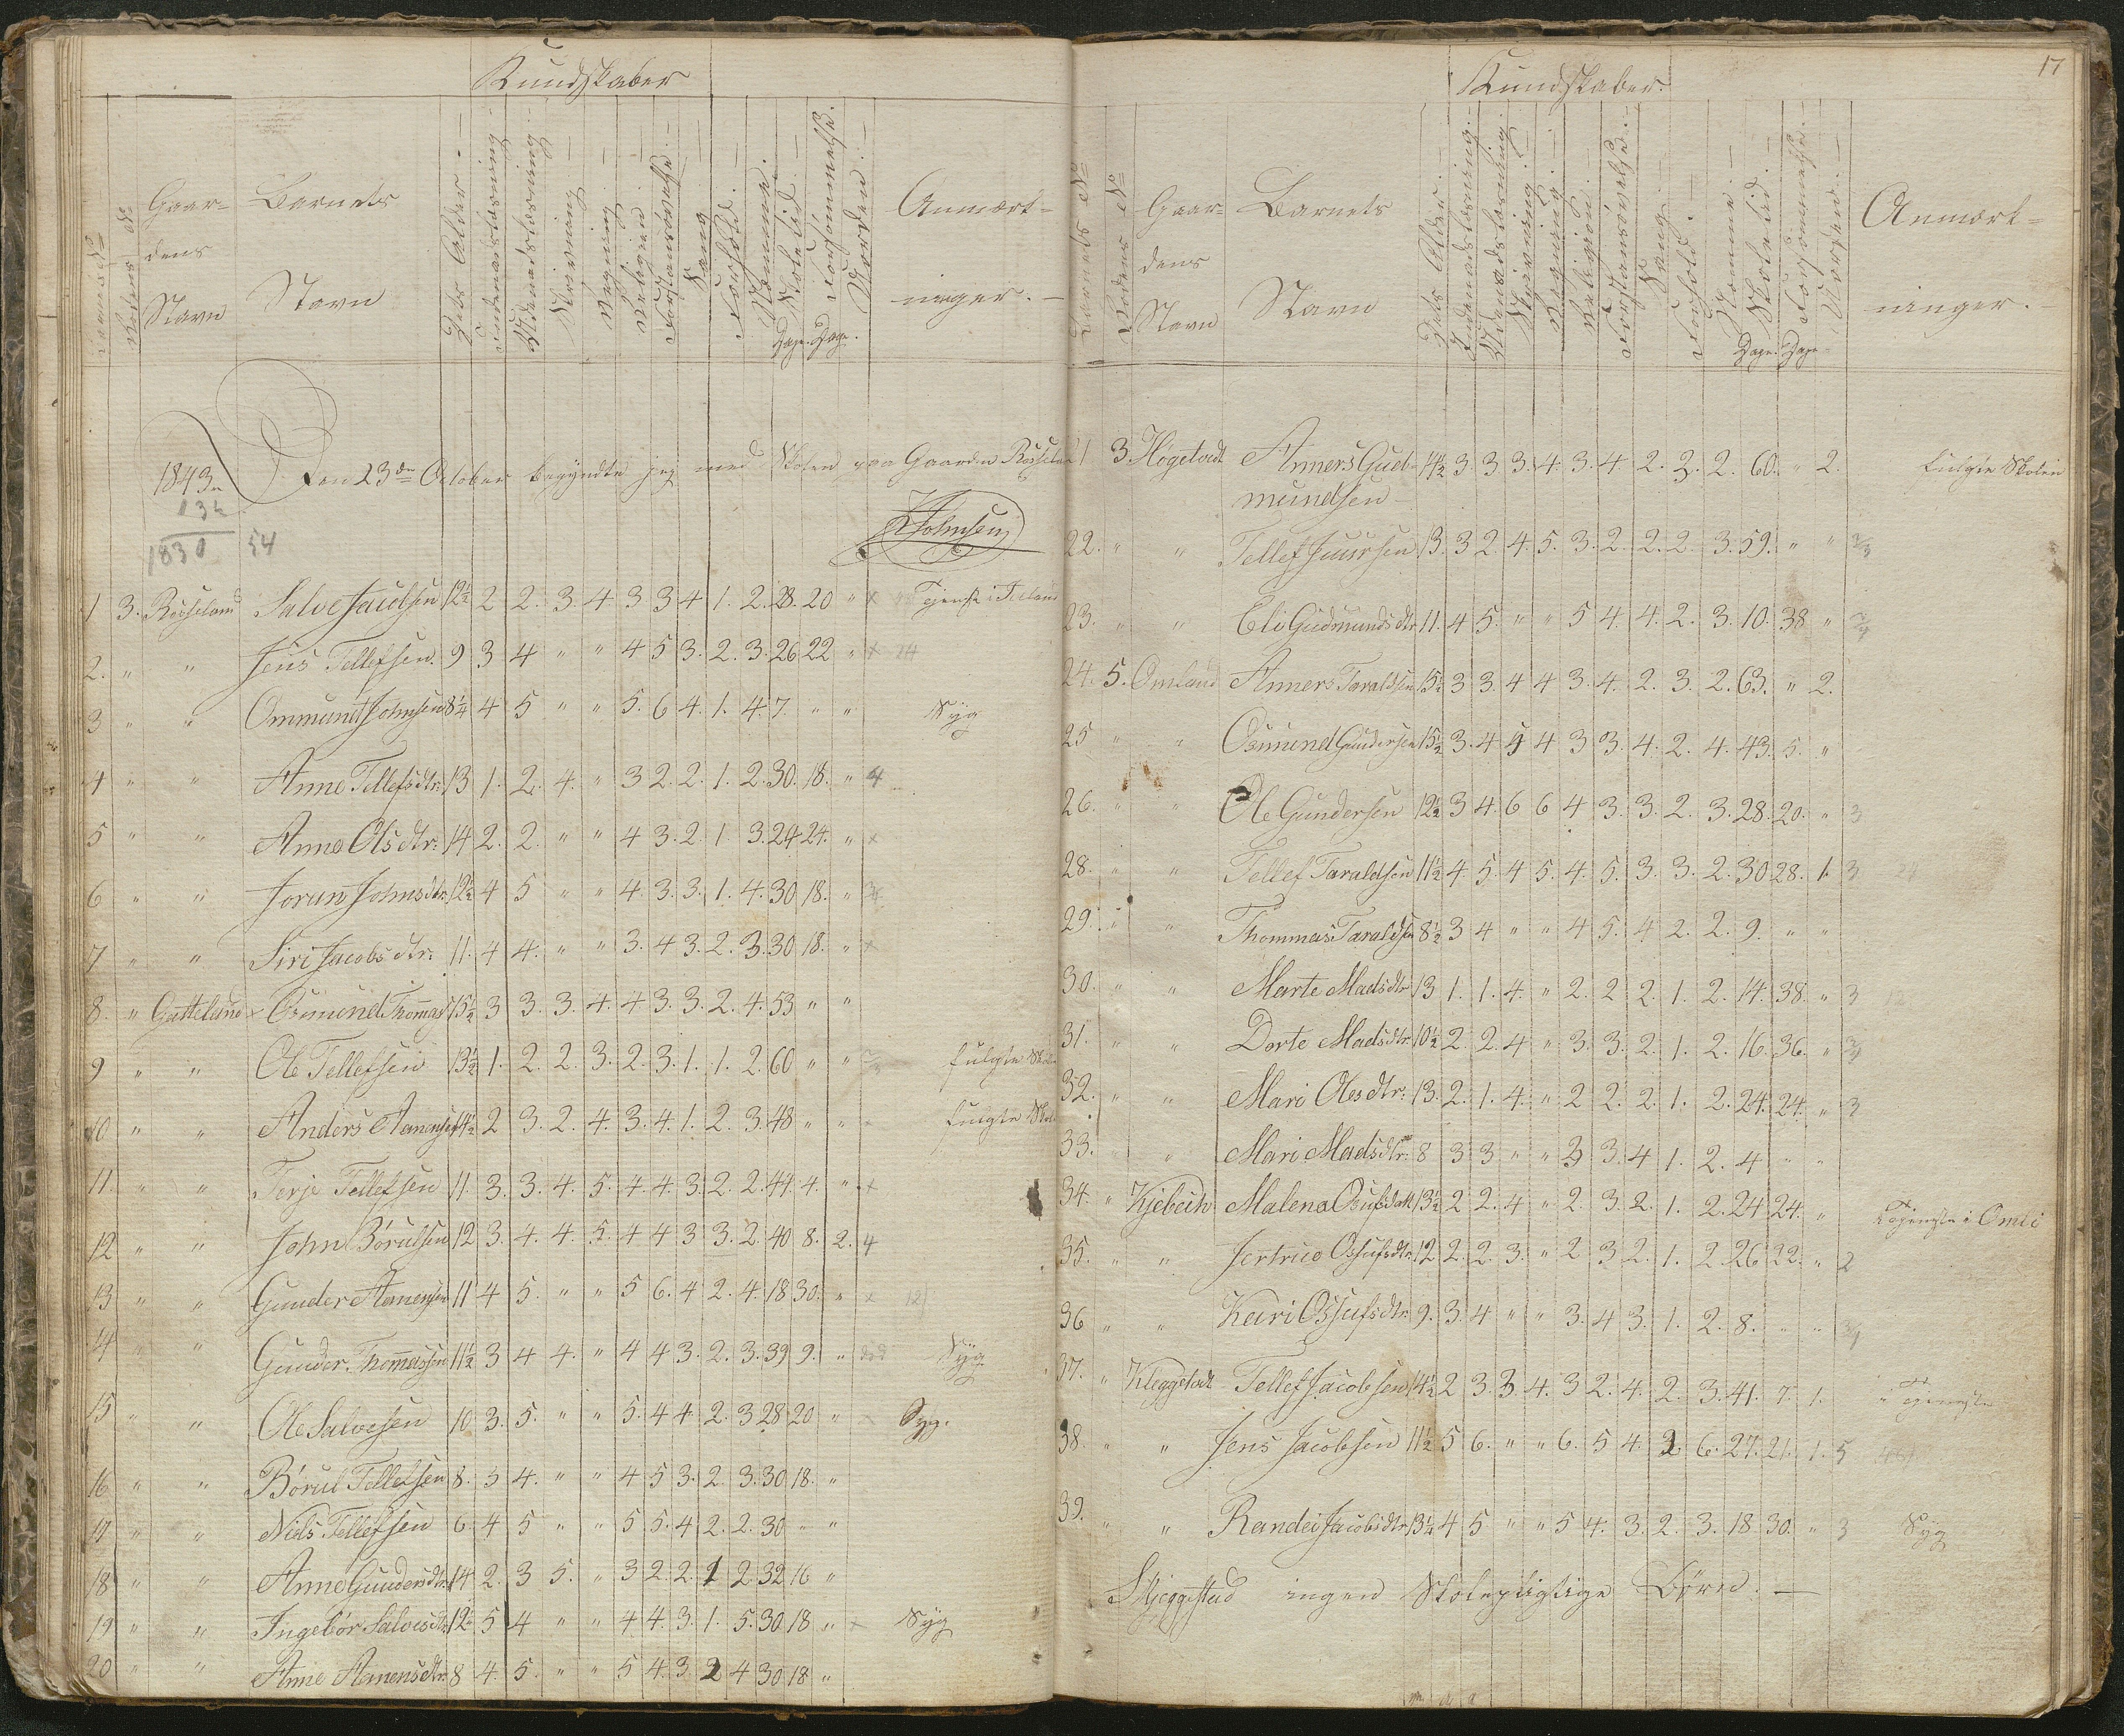 Kundskaber
Barnets No
Rodens No
Gaar-
dens
Navn
Barnets
Navn
Dets Alder.
Indenadslæsning
Udenadslæsning
Skrivning
Regning
Religion
Forstansøvelse
Sang
Forhold.
Nemme.
Skoletid. Dage.
Forsømmelse. Dage.
Norden.
Anmærk-
ninger.
1843
Den 23de October begyndte jeg med Skolen paa Gaarden Røiseland
13½
1830 54
Johnsen
1 3. Røiseland Salve Jacobsen 12½ 2 2. 3. 4 3 3 4 1. 2. 28. 20 " x Tjeneste i
2. " " Jens Tellefsen. 9 3 4 " " 4 5 3. 2. 3. 26 22 " x 24
3 " " Ommund Johnsen 8¼ 4 5 " " 5. 6 4. 1. 4. 7. " " Syg
4 " " Anne Tellefsdtr: 13 1. 2. 4. " 3 2. 2. 1. 2. 30. 18. " 4
5 " " Anne Olsdtr: 14 2. 2. " " 4 3. 2. 1 3. 24 24. " x
6 " " Jorun Johnsdtr. 12½ 4 5 " " 4. 3. 3. 1. 4. 30 18. "
7 " " Siri Jacobsdtr: 11. 4 4. " " 3. 4 3. 2. 3. 30 18. " x
8. " Gatteland Osmund Thommas 15½ 3 3. 3. 4. 4 3. 3. 2. 4. 53 " "
9 " " Ole Tellefsen 13½ 1. 2. 2. 3. 2. 3. 1. 1. 2. 60 " " fulgte Skolen
10 " " Anders Aanensen 14½ 2 3. 2. 4. 3. 4. 1. 2. 3. 48 " " " fulgte Skol
11. " " Terje Tellefsen 11. 3. 3. 4. 5. 4. 4. 3. 2. 2. 44 4. " x
12 " " John Børulsen 12 3. 4. 4. 5. 4 4 3 3. 2. 40 8. 2. 4
13 " " Gunder Aanensen 11 4 5. " " 5 6. 4 2. 4. 18 30. " x 12
14 " " Gunder Thommassen 11½ 3 4 4. " 4 4 3. 2. 3. 39 9. " død Syg
15 " " Ole Salvesen 10 3. 5. " " 5. 4 4. 2. 3 28 20 " x Syg.
16 " " Børul Tellefsen 8. 3 4. " " 4 5 3. 2. 3. 30 18. "
17 " " Niels Tellefsen 6. 4 5 " " 5 5. 4 2. 2. 30 " "
18 " " Anne Gundersdtr. 14 2. 3 5. " 3 2. 2. 1 2. 32 16 "
19 " " Ingebor Salvesdtr. 12½ 5 4 " " 4 4. 3. 1. 5. 30 18 " x Syg
20 " " Anne Aanensdtr. 8 4. 5. " " 5 4. 3. 2 4 30 18. "
17
Kundskaber.
Barnets No
Rodens No
Gaar-
dens
Navn
Barnets
Navn
Dets Alder.
Indenadslæsning.
Udenadslæsning.
Skrivning.
Regning.
Religion.
Forstansøvelse.
Sang.
Forhold.
Nemme.
Skoletid. Dage.
Forsømmelse. Dage.
Norden.
Anmærk-
ninger.
21 3. Høgestedt Anners Gud- 14½ 3. 3 3. 4. 3. 4 2. 2. 2. 60. " 2. fulgte Skolen
mundsen
22. " " Tellef Juursen 13. 3 2. 4. 5. 3. 2. 2. 2. 3. 59. " "
23. " " Eli Gudmundsdtr. 11. 4 5. " " 5 4. 4. 2. 3. 10. 38 "
24. 5. Omland Anners Taraldsen 15½ 3 3. 4 4 3. 4. 2. 3. 2. 63. " 2.
25 " " Osmund Gundersen 15½ 3. 4 5 4 3 3. 4. 2. 4. 43. 5. "
26. " " Ole Gundersen 12½ 3 4. 6 6 4 3. 3. 2. 3. 28. 20. " 3
28. " " Tellef Taraldsen 11½ 4. 5. 4 5. 4. 5. 3. 3. 2. 30 28. 1. 3
29. " " Thommas Taraldsen 8½ 3 4 " " 4 5. 4 2. 2. 9. " "
30. " " Marte Madsdtr 13 1. 1. 4. " 2. 2 2. 1. 2. 14. 38. " 3
31. " " Dorte Madsdtr. 10½ 2. 2. 4 " 3. 3. 2. 1. 2. 16. 36. "
32. " " Mari Olesdtr: 13. 2. 1. 4. " 2 2. 2. 1. 2. 24. 24. " 3
33. " " Mari Madsdtr. 8 3 3. " " 3 3. 4 1. 2. 4 " "
34. " Kjebeck Malena Osufsdatt 13½ 2 2. 4 " 2. 3. 2. 1. 2. 24 24. " Tjeneste i Omli
35. " " Jertrud Ossufsdtr. 12 2. 2. 3. " 2. 3 2. 1. 2. 26 22. " 2
36 " " Kari Ossufsdtr. 9. 3. 4 " " 3. 4 3. 1. 2. 8. " "
37. " Kleggestedt Tellef Jacobsen 14½ 2 3. 3 4. 3 2. 4. 2. 3. 41. 7. 1. i Tjeneste
38. " " Jens Jacobsen 11½ 5 6. " " 6. 5 4. 2. 6. 27. 21. 1. 5
39. " " Randei Jacobsdtr. 13½ 4 5 " " 5 4. 3. 2. 3. 18 30. " 3 Syg
Skjeggestad ingen Skolepligtige Børn.